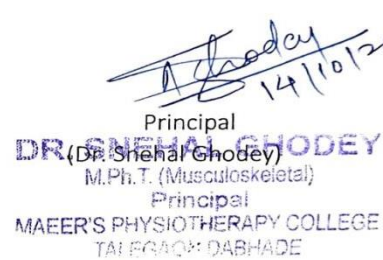 Ghodey
14/10/2
Principal
(Dr. Snehal Ghodey)
DR. SNEHAL GHODEY
M.Ph.T. (Musculoskeletal)
Principal
MAEER'S PHYSIOTHERAPY COLLEGE
TALEGAON DABHADE